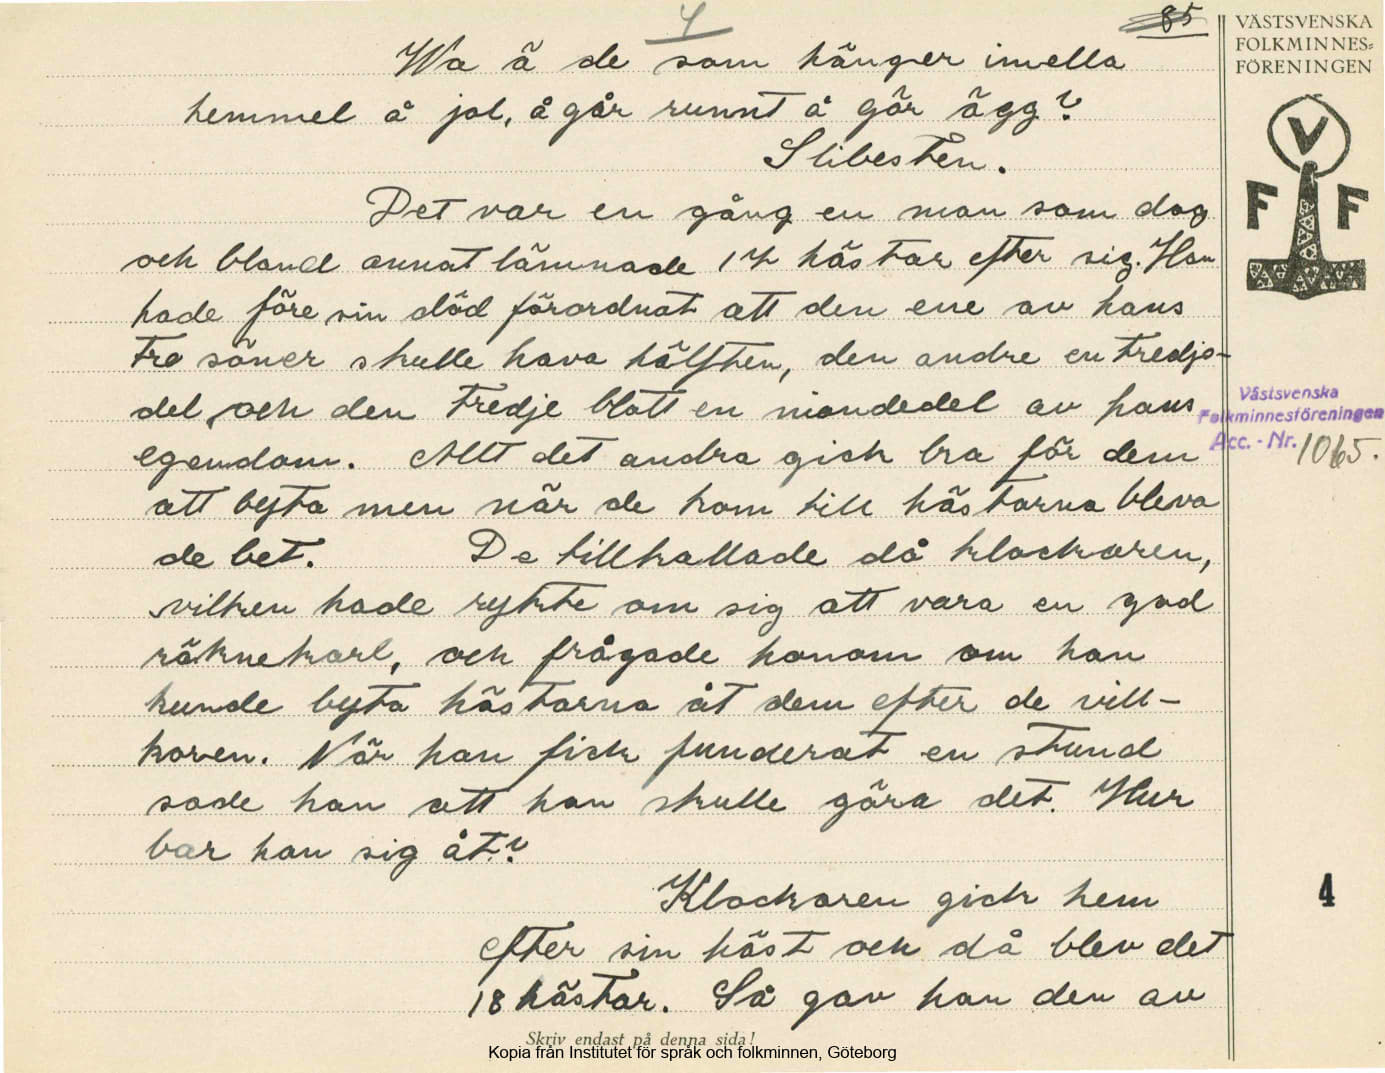 4
85
VÄSTSVENSKA
FOLKMINNES=
FÖRENINGEN
V
F F
Wa ä de som hänger imella
hemmel å jol, å går runnt å gör ägg?
Slibesten.
Det var en gång en man som dog
och bland annat lämnade 17 hästar efter sig. Han
hade före sin död förordnat att den ene av hans
tre söner skulle hava hälften, den andre en tredje-
del, och den tredje blott en niondedel av hans
egendom. Allt det andra gick bra för dem
att byta men när de kom till hästarna bleva
de bet. De tillkallade då klockaren,
vilken hade rykte om sig att vara en god
räknekarl, och frågade honom om han
kunde byta hästarna åt dem efter de vill-
koren. När han fick funderat en stund
sade han att han skulle göra det. Hur
bar han sig åt?
Klockaren gick hem
efter sin häst och då blev det
18 hästar. Så gav han den av
Västsvenska
Folkminnesföreningen
Acc. - Nr. 1065.
4
Skriv endast på denna sida!
Kopia från Institutet för språk och folkminnen, Göteborg